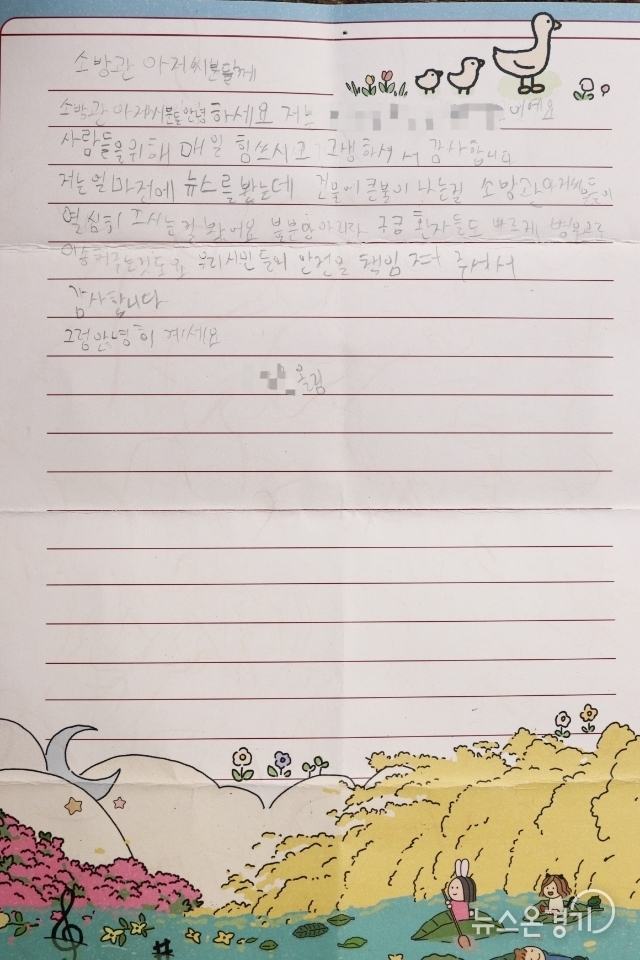 소방관 아저씨분들께
소방관 아저씨분들 안녕하세요 저는 이예요
사람들을위해 매일 힘쓰시고 고생하셔서 감사합니다
저는 얼마전에 뉴스를 봤는데 건물에 큰불이 나는걸 소방관아저씨들이
열심히 끄시는걸 봤어요 뿐만아니라 응급 환자들도 빠르게 병원으로
이송해주는것도요 우리시민들의 안전을 책임져 주셔서
감사합니다
그럼안녕히 계세요
올림
뉴스온경기